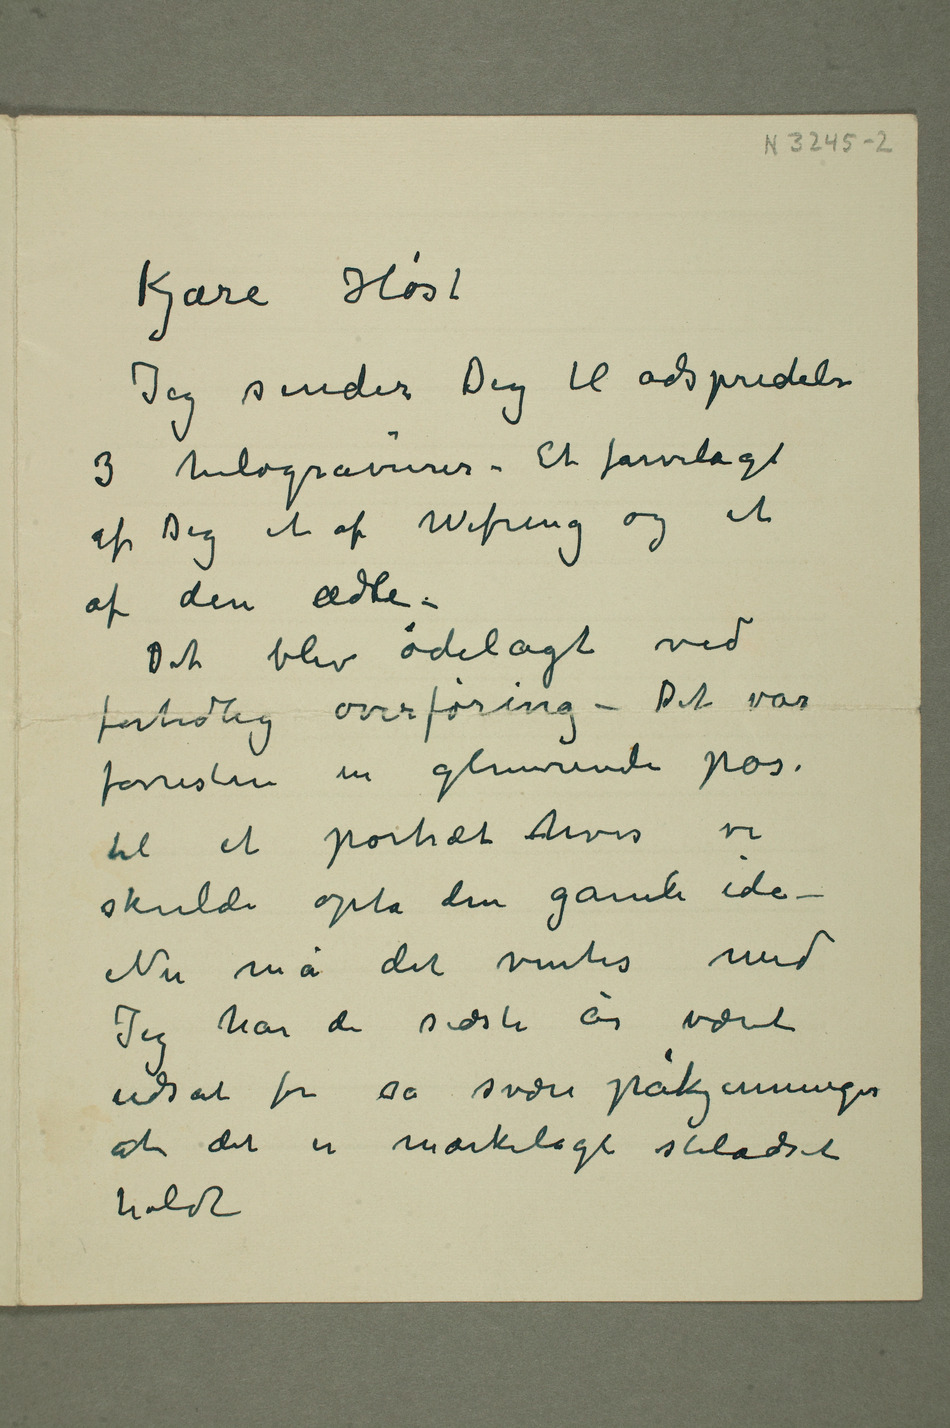 N 3245-2
Kjære Høst
Jeg sender Dig til adspredelse
3 heliogravürer – Et farvelagt
af Dig et af Wefring og et
af den ædle –
Det blev ødelagt ved
fortidlig overføring – Det var
forresten en glimrende pos.
til et portræt hvis vi
skulde opta den gamle ide –
Nu må det ventes med
Jeg har de sidste år været
udsat for så svære påkjænninger
at det er mærkeligt stiladset
holdt